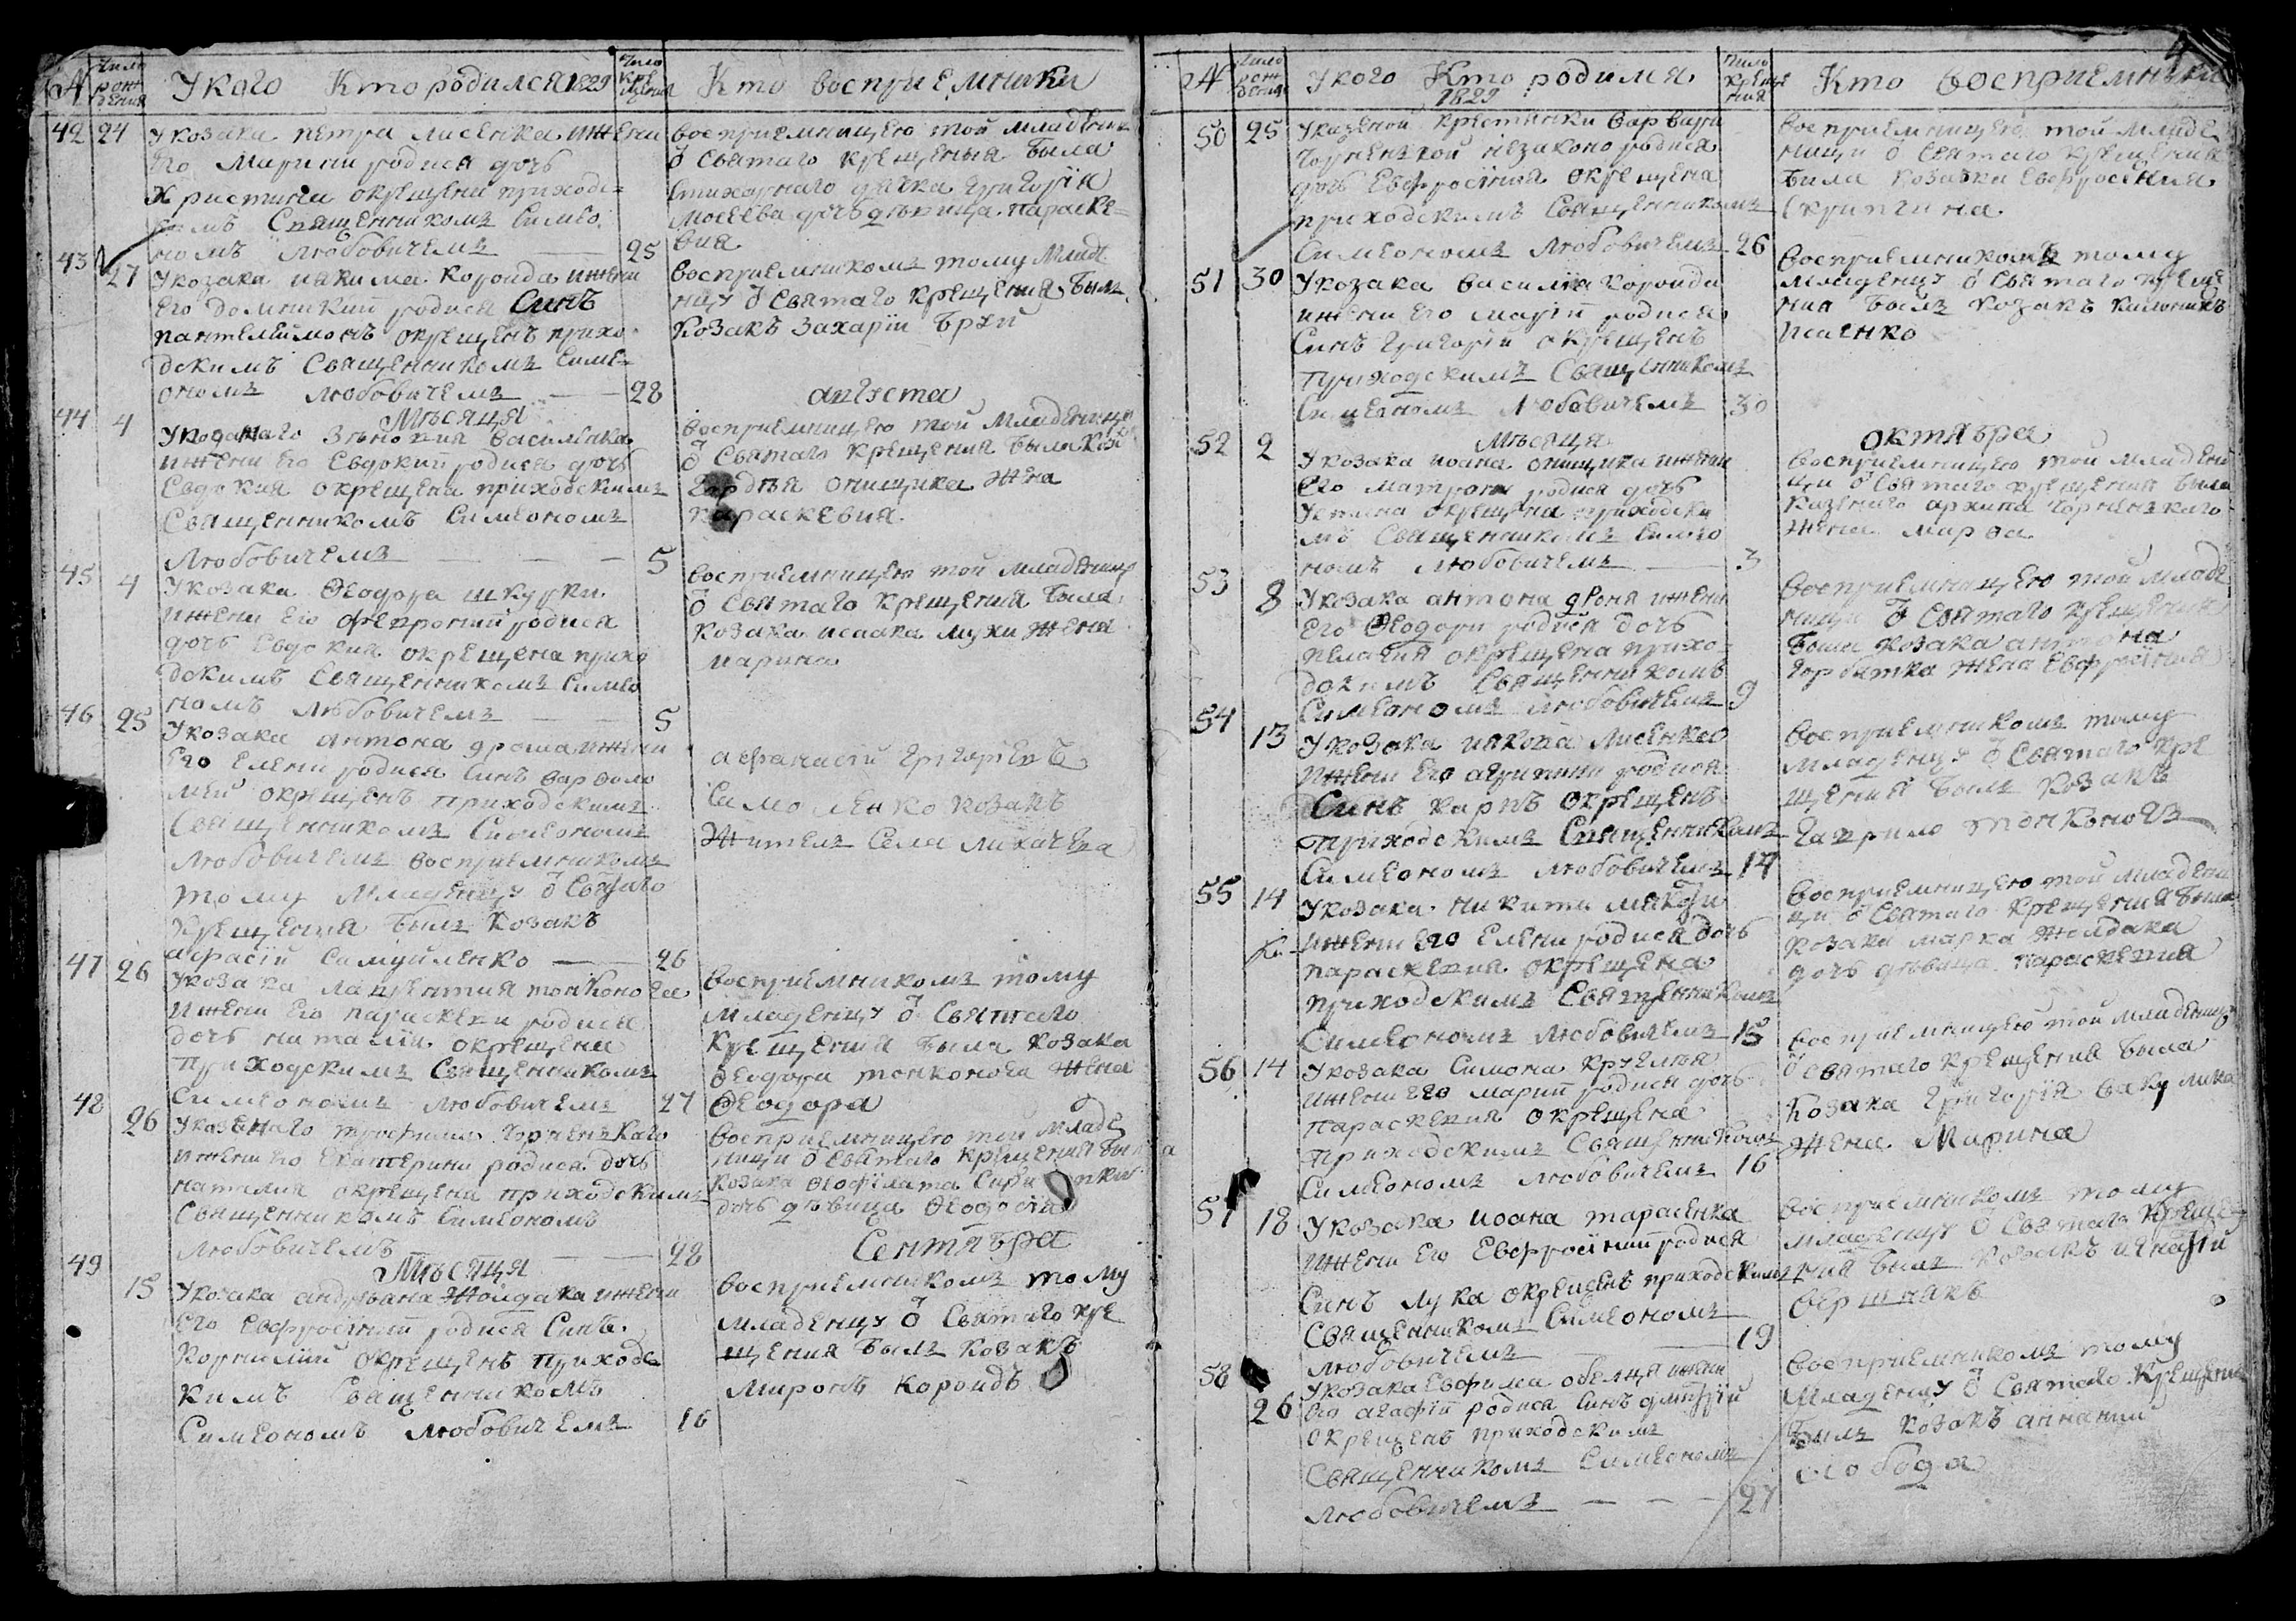 №
Число рождения
У кого Кто родился 1829
Число крещения
Кто восприемники
42 24 У козака петра лисенка ижени
его Марини родися дочь
Христина окрещена приходс=
кимъ Священникомъ Симео
номъ Любовичемъ 25
восприемницею той младениц
ѿ Святаго крещения была
стихарнаго дячка григорія
Мосеева дочь дѣвица параске=
вия
43 27 У козака иякима короида ижени
его домникии родися Синъ
пантелеимонъ окрещенъ прихо
дскимъ Священникомъ Симе=
ономъ любовичемъ 28
восприемникомъ тому младе
нцу ѿ Святаго крещения былъ
козакъ захарїи
Мѣсяца августа
44 4 василенка
ижени его Евдокии родися дочь
Евдокия окрещена приходскимъ
Священникомъ Симеономъ
Любовичемъ 5
восприемницею той младениц
ѿ Святаго крещения была
онищика жена
параскевия
45 4 У козака Ѳеодора шкурки
ижени его февронии родися
дочь Евдокия окрещена прихо
дскимъ Священникомъ Симео
номъ любовичемъ 5
восприемницею той младениц
ѿ Святаго крещения была
козака исаака мухи жена
марина
46 25 У козака антона дромa ижени
его Елени родися Синъ варѳоло
мей окрещенъ приходскимъ
Священникомъ Симеономъ
любовичемъ восприемникомъ
тому Младенцу ѿ Святаго
Крещения былъ Козакъ
Самуйленко 26
афанасїй григориевъ
козакъ
Житель Села лихачева
47 26 У козака лаврентия тонконога
ижени его параскеви родися
дочь наталїя окрещена
приходскимъ Священникомъ
Симеономъ любовичемъ 27
восприемникомъ тому
младенцу ѿ Святаго
крещения была козака
Ѳеодора тонконога жена
Ѳеодора
48 26 У казенаго трофима горненкаго
ижени его Екатерини родися дочь
наталия окрещена приходскимъ
Священникомъ Симеономъ
любовичемъ 28
восприемницею той младе
ници ѿ Святаго крещения была
козака Ѳеофилата
дочь дѣвица Ѳеодосїя
Мѣсяца Сентября
49 15 У козака андрияна Жолдака ижени
его Евфросїнии родися Синъ
Корнилїй окрещенъ приходс
кимъ Священникомъ
Симеономъ любовичемъ 16
восприемникомъ тому
младенцу ѿ Святаго кре
щения былъ козакъ
миронъ короидъ
4
№
Число рождения
У кого Кто родился
1829
Число крещения
Кто восприемники
50 25 У казеной крестянки варвари
горненкой незаконо родися
дочь Евфросїния окрещена
приходскимъ Священникомъ
Симеономъ любовичемъ 26
восприемницею той младе
ници ѿ Святаго крещения
была козачка Евфросїния
51 30 У козака василїя короида
ижени его марїи родися
Синъ григорїй окрещенъ
приходскимъ Священникомъ
Симеономъ Любовичемъ 30
восприемникомъ тому
младенцу ѿ Святаго креще
ния былъ козакъ
исаенко
Мѣсяца октября
52 2 У козака иоана онищика ижени
его матрони родися дочь
Устина окрещена приходски
мъ Священникомъ Симео
номъ любовичемъ 3
восприемницею той младени
ци ѿ Святаго крещения была
казенаго архипа горненкаго
жена марѳа
53 8 У козака антона дроня ижени
его Ѳеодори родися дочь
пелагия окрещена прихо
дскимъ Священникомъ
Симеономъ любовичемъ 9
восприемницею той младе
ници ѿ Святаго крещения
была козака антона
горбатка жена Евфросїния
54 13 У козака иякова лисенка
ижени его агрипини родися
Синъ карпъ окрещенъ
приходскимъ Священникомъ
Симеономъ любовичемъ 14
восприемникомъ тому
младенцу ѿ Святаго кре
щения былъ козакъ
гаврило тонконогъ
55 14 У козака никити
ижени его Елени родися дочь
параскевия окрещена
приходскимъ Священникомъ
Симеономъ любовичемъ 15
восприемницею той младени
ци ѿ Святаго крещения была
козака марка жолдака
дочь дѣвица параскевия
56 14 У козака Симона
ижени его марии родися дочь
параскевия окрещена
приходскимъ Священникомъ
Симеономъ любовичемъ 16
восприемницею той младениц
ѿ Святаго крещения была
козака григорїя вакулика
жена Марина
57 18 У козака иоана тарасенка
ижени его Евфросїнии родися
Синъ лука окрещенъ приходскимъ
Священникомъ Симеономъ
любовичемъ 19
восприемникомъ тому
младенцу ѿ Святаго креще
ния былъ козакъ
вершнякъ
58 26 У козака Евфима обелця ижени
его агафїи родися Синъ
окрещенъ приходскимъ
Священникомъ Симеономъ
любовичемъ 27
восприемникомъ тому
младенцу ѿ Святаго крещения
былъ козакъ ананий
слобода